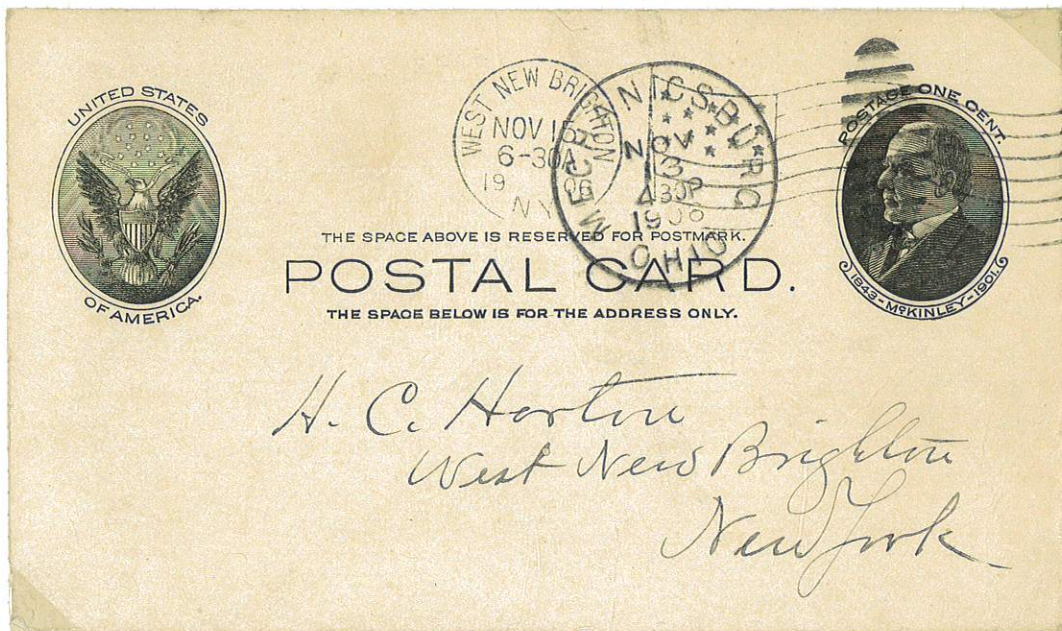 UNITED STATES
OF AMERICA.
WEST NEW BRIGHTON
NOV
6-30A
19 06
N.Y.
MECHANICSBURG
NOV
13
430P
1906
OHIO
POSTAGE ONE CENT.
1843-McKINLEY-1901.
THE SPACE ABOVE IS RESERVED FOR POSTMARK.
POSTAL CARD.
THE SPACE BELOW IS FOR THE ADDRESS ONLY.
H. C. Horton
West New Brighton
New York